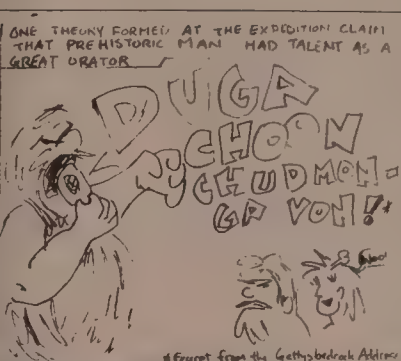 ONE THEORY FORMED AT THE EXPEDITION CLAIM
THAT PREHISTORIC MAN HAD TALENT AS A
GREAT ORATOR
DUGA
CHOON
CHUDMON-
GA VOH!*
*Excerpt from the Gettysbedrock Address